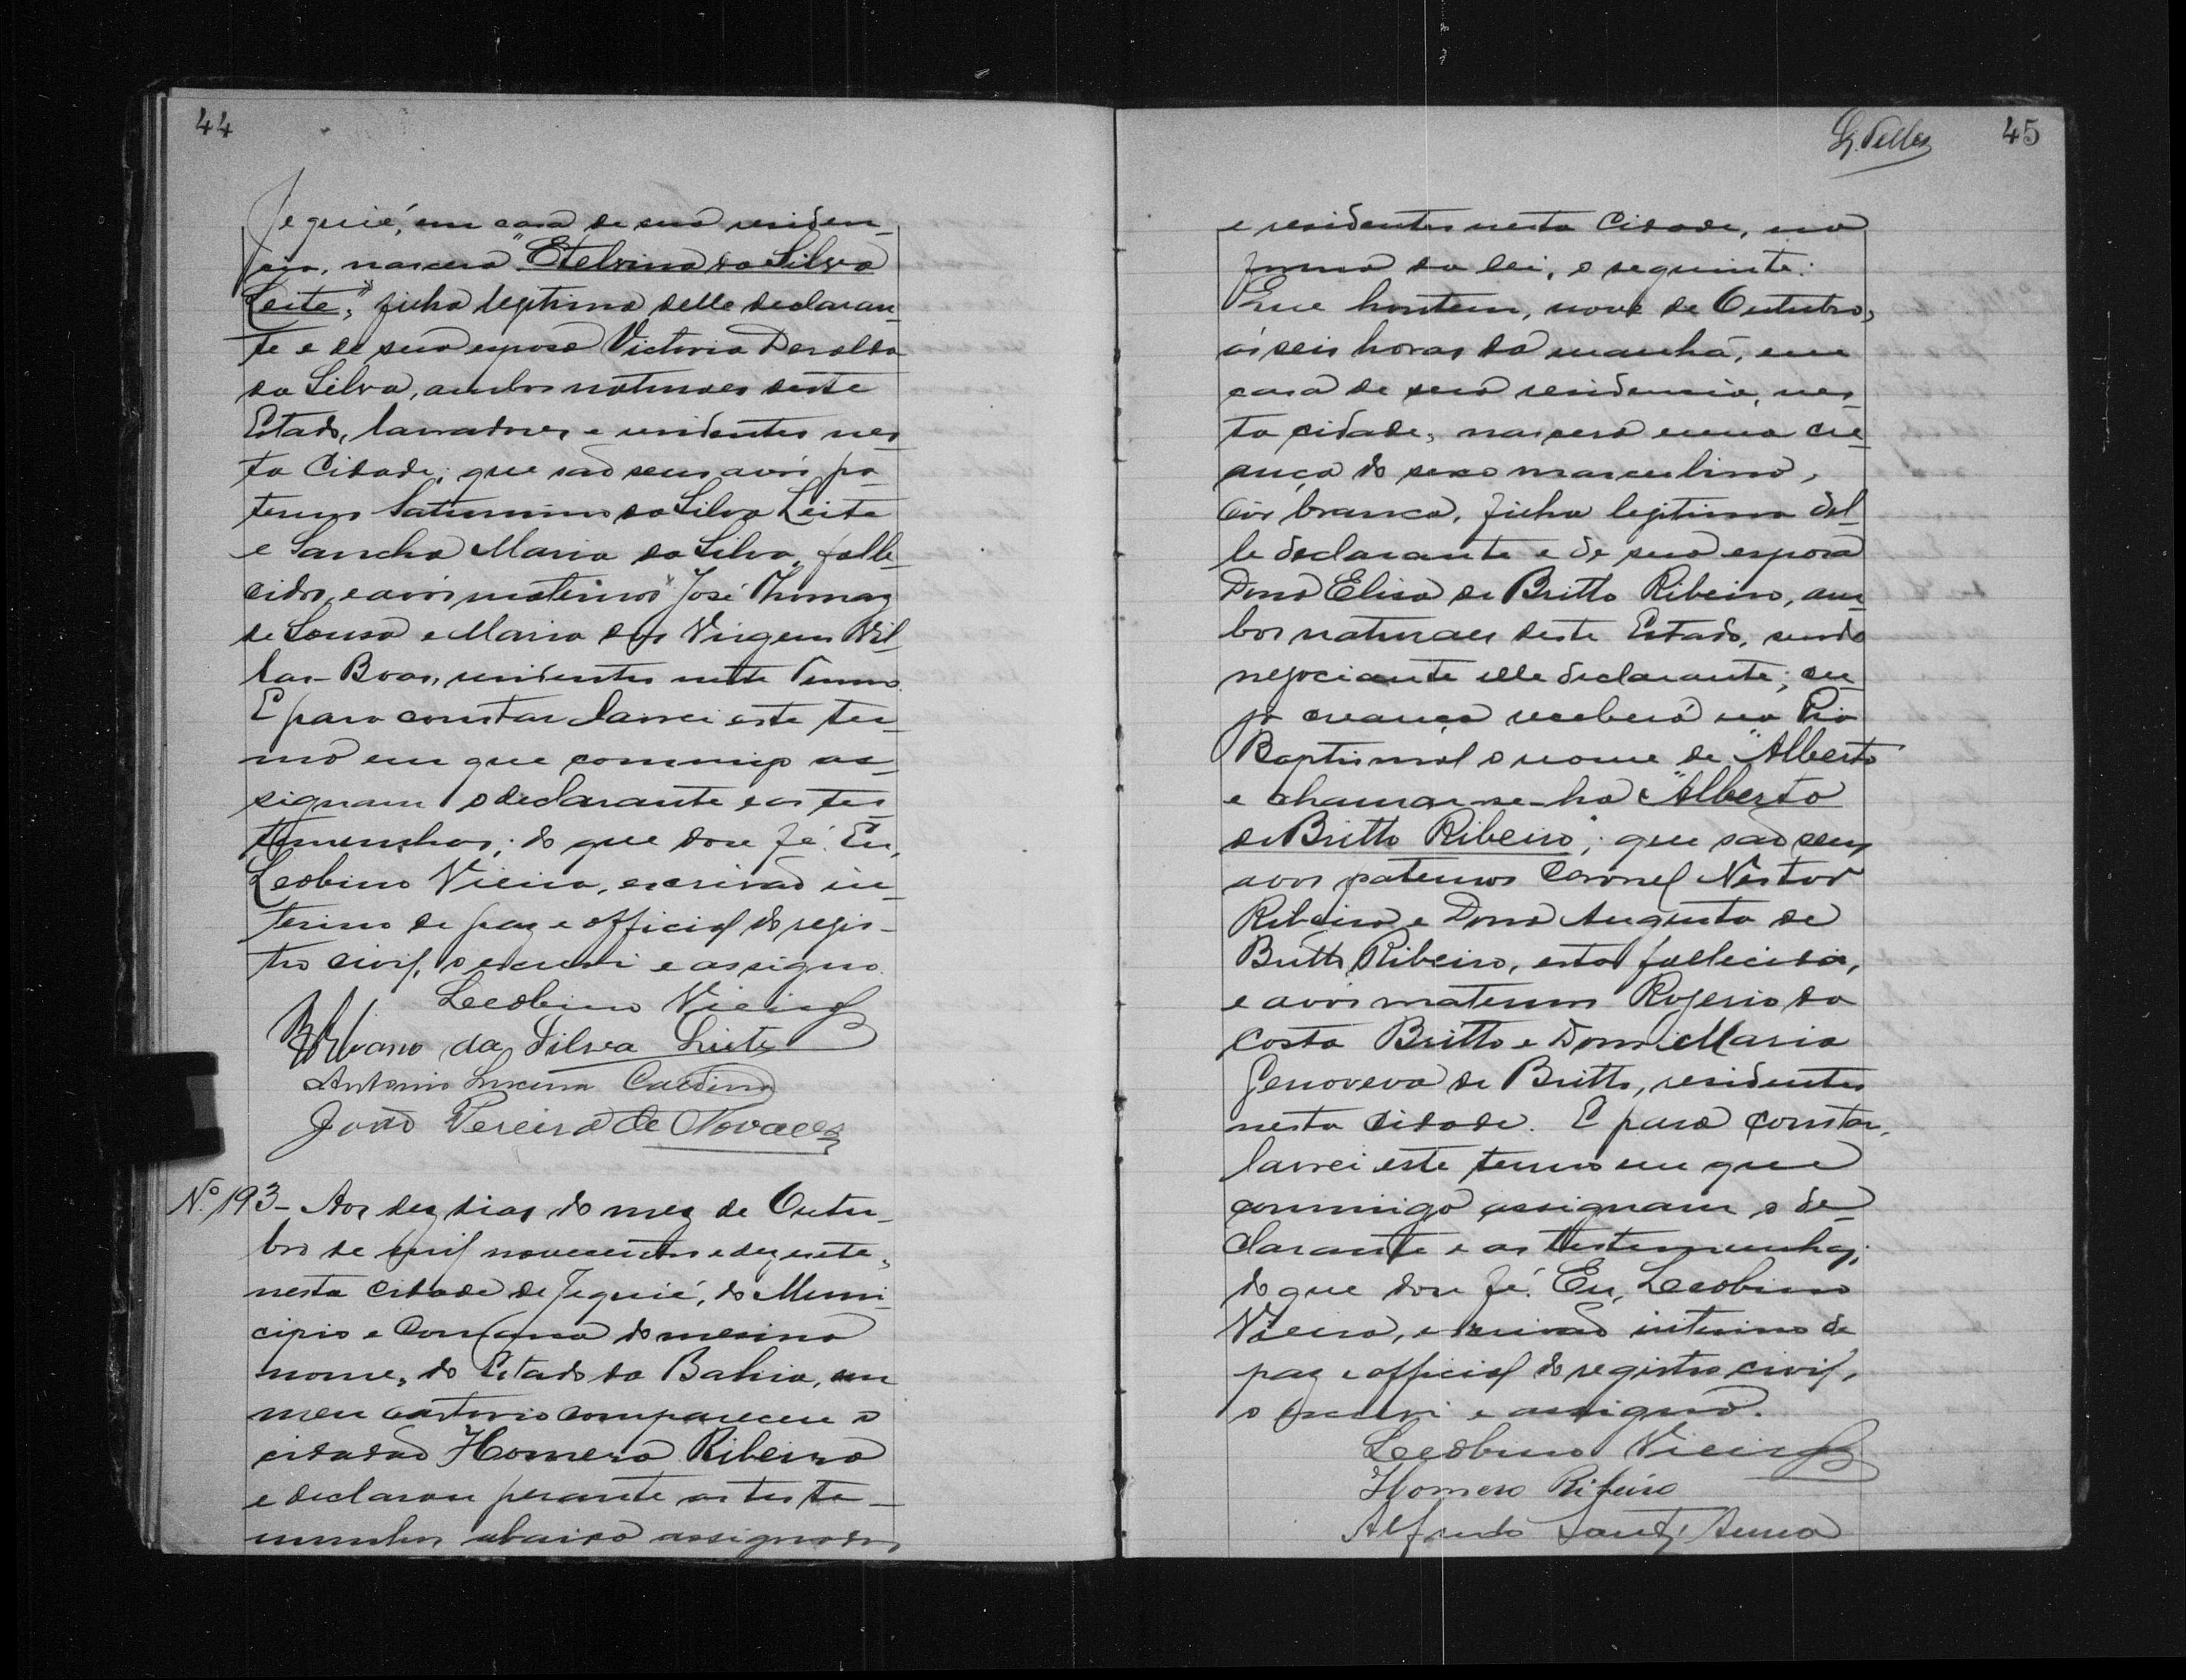 44
Jequié, em casa de sua residen-
cia, nasceu "Etelvina da Silva
Leite", filha legitima delle declaran-
te e de sua esposa Victoria Deralda
da Silva, ambos naturaes deste
Estado, lavradores e residentes nes-
ta Cidade; que são seus avós pa-
ternos Saturnino da Silva Leite
e Sancha Maria da Silva, falle-
cidos, e avós maternos José Thomaz
de Sousa e Maria das Virgens Vil-
las-Boas, residentes neste Termo.
E para constar lavrei este ter-
mo em que commigo as-
signam o declarante e as tes-
temunhas; do que dou fé. Eu,
Leobino Vieira, escrivão in-
terino de paz e official do regis-
tro civil, o escrevi e assigno.
Leobino Vieira
da Silva Leite
Antonio
João Pereira de Novaes
Nº 193- Aos dez dias do mez de Outu-
bro de mil novecentos e dezesete,
nesta cidade de Jequié, do Muni-
cipio e Comarca do mesmo
nome, do Estado da Bahia, em
meu cartorio compareceu o
cidadão Homero Ribeiro
e declarou perante as teste-
munhas abaixo assignadas
45
e residentes nesta Cidade, na
forma da lei, o seguinte:
Que hontem, nove de Outubro,
ás seis horas da manhã, em
casa de sua residencia, nes-
ta cidade, nascera uma cre-
ança do sexo masculino,
côr branca, filha legitima del-
le declarante e de sua esposa
Dona Elisa de Britto Ribeiro, am-
bos naturaes deste Estado, sendo
negociante elle declarante; cu-
ja creança receberá na Pia
Baptismal o nome de "Alberto"
e chamar-se-ha "Alberto
de Britto Ribeiro"; que são seus
avós paternos Coronel Nestor
Ribeiro e Dona Augusta de
Britto Ribeiro, esta fallecida,
e avós maternos Rogerio da
Costa Britto e Dona Maria
Genoveva de Britto, residentes
nesta cidade. E para constar,
lavrei este termo em que
commigo assignam o de-
clarante e as testemunhas;
do que dou fé. Eu, Leobino
Vieira, escrivão interino de
paz e official do registro civil,
o escrevi e assigno.
Leobino Vieira
Homero Ribeiro
Alfredo Sant'Anna